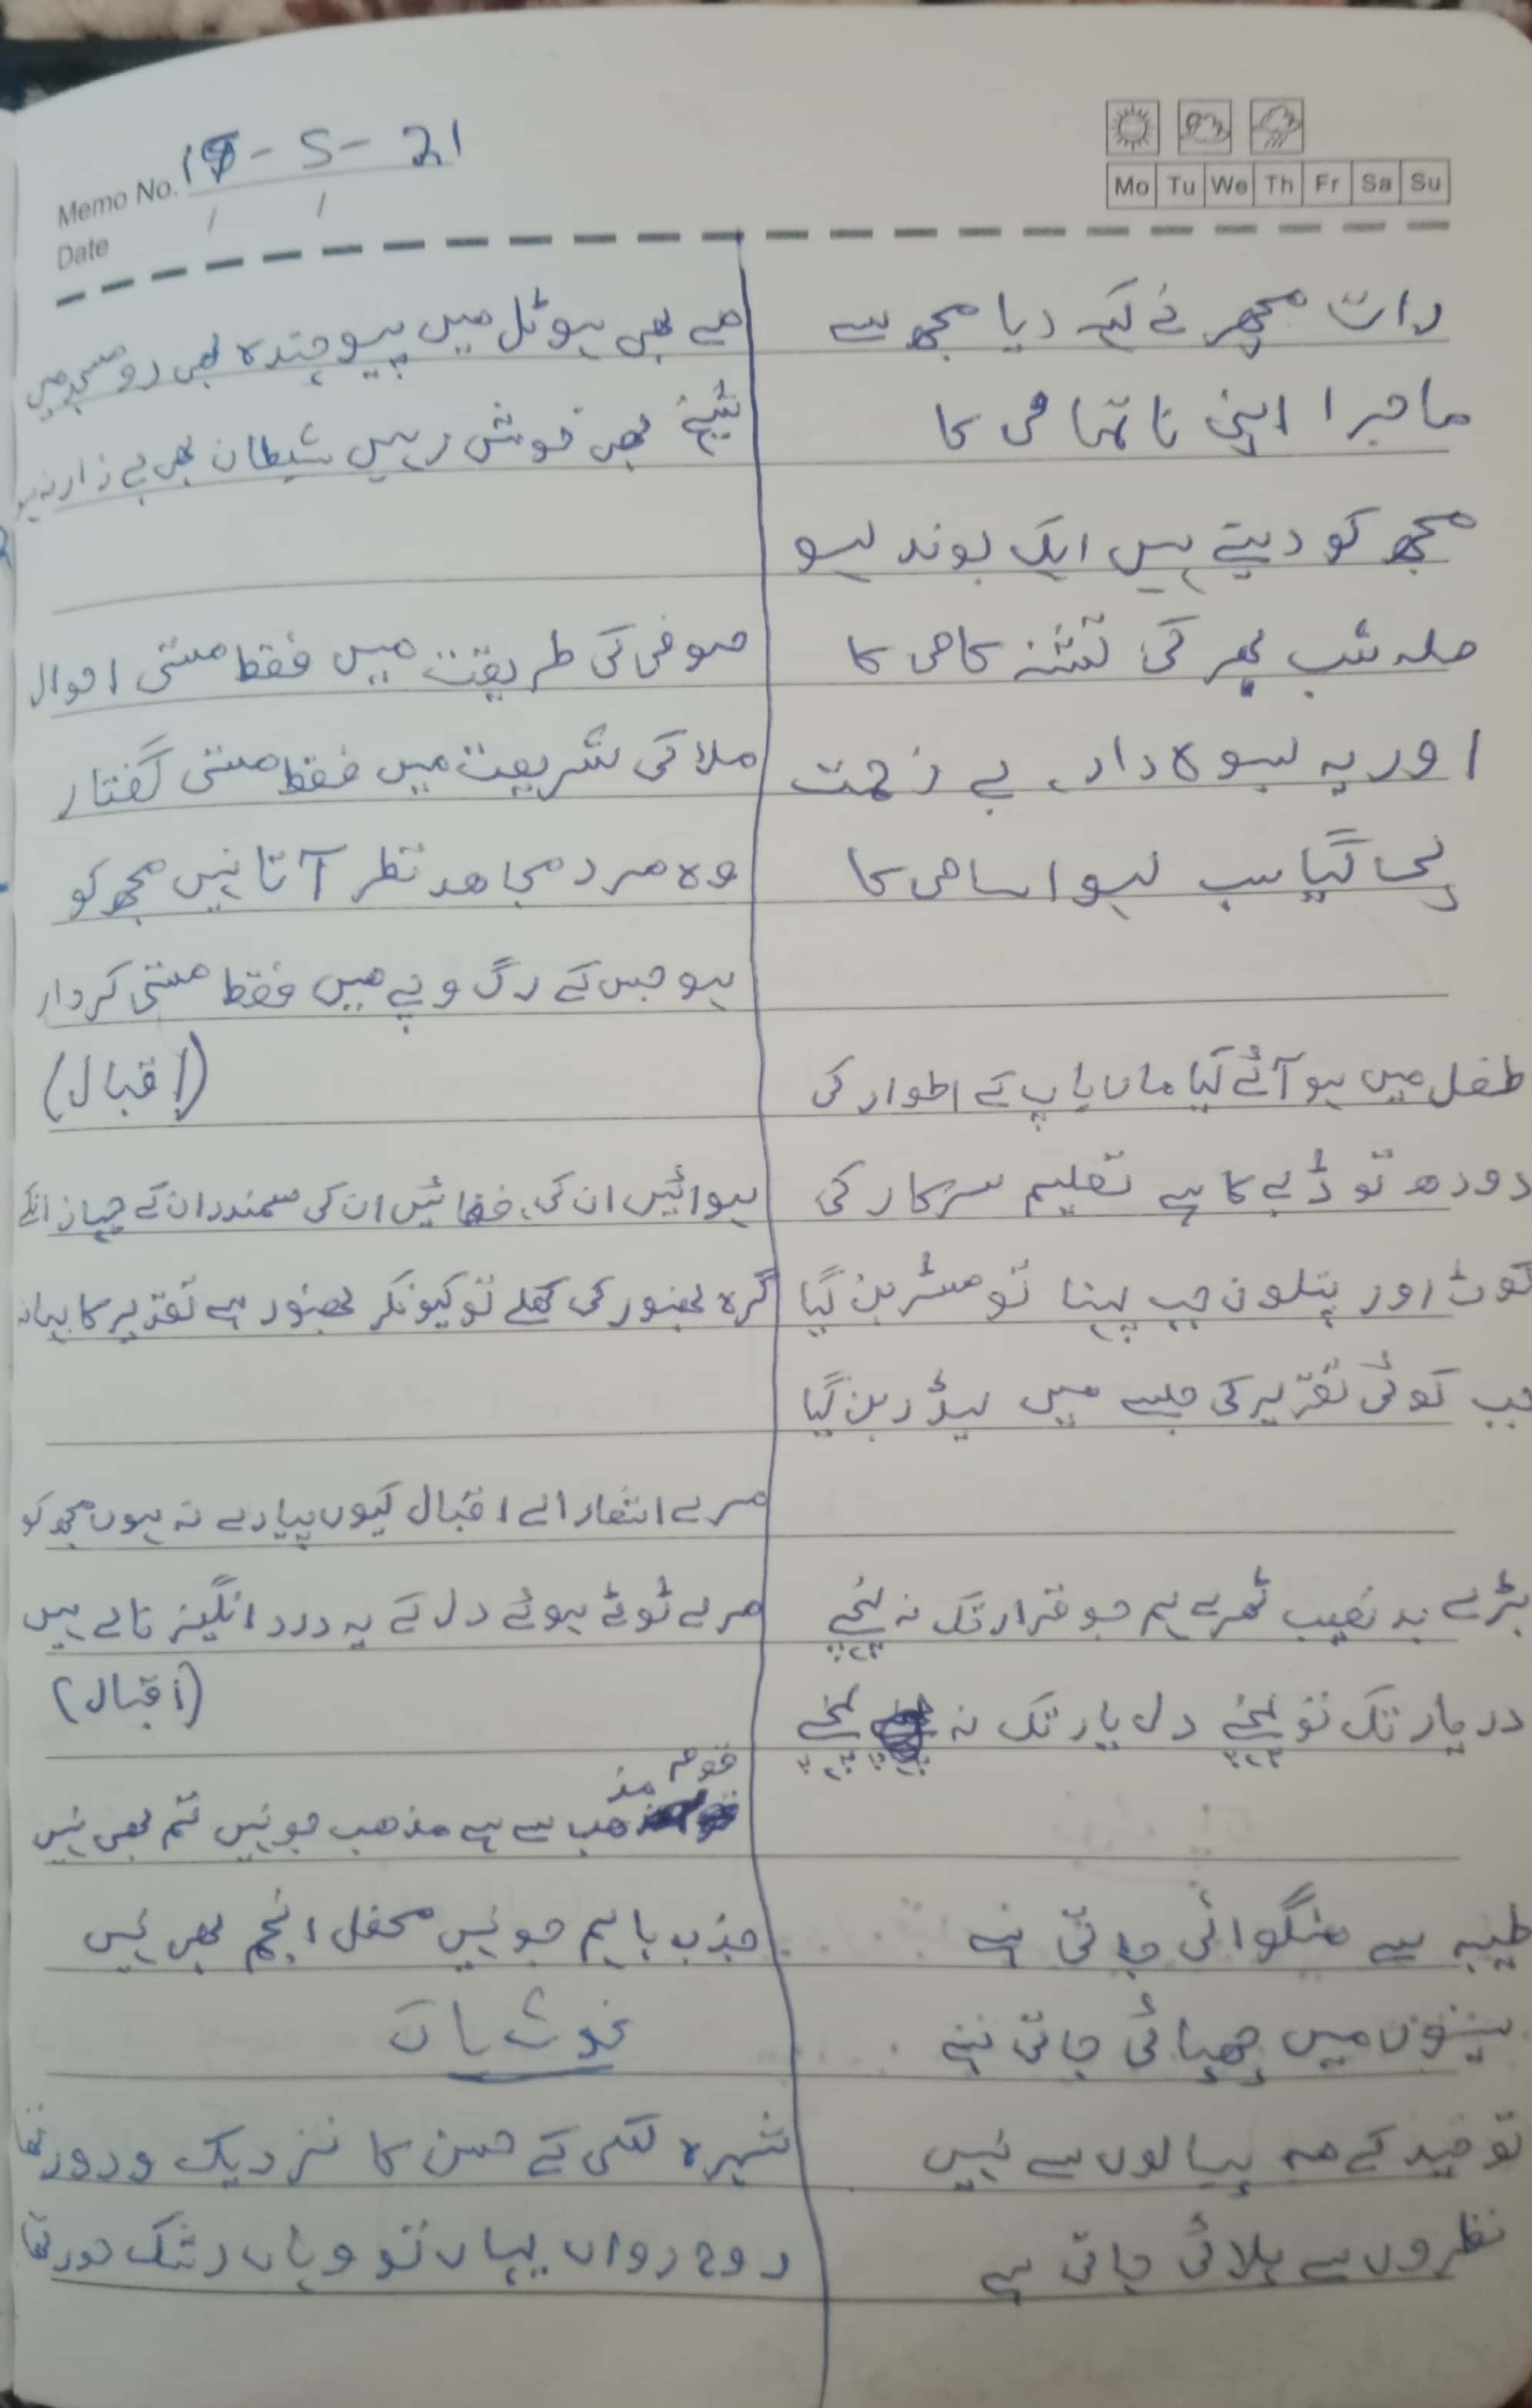 Memo No. 18-5-21
Date / /
Mo Tu We Th Fr Sa Su
رات مچھر نے کہہ دیا مجھ سے
ماجرا اپنی ناتمامی کا
مجھ کو دیتے ہیں ایک بوند لہو
صلہ شب بھر کی تشنہ کامی کا
اور یہ بسوہ دار، بے زحمت
پی گیا سب لہو اسامی کا
طفل میں بو آئے کیا ماں باپ کے اطوار کی
دودھ تو ڈبے کا ہے تعلیم سرکار کی
کوٹ اور پتلون جب پہنا تو مسٹر بن گیا
جب کوئی تقریر کی جلسے میں لیڈر بن گیا
بڑے بد نصیب ٹھرے ہم جو قرار تک نہ پہنچے
در یار تک تو پہنچے دل یار تک نہ پہنچے
طیبہ سے منگوائی جاتی ہے
سینوں میں چھپائی جاتی ہے
توحید کے مہ پیالوں سے نہیں
نظروں سے پلائی جاتی ہے
مے بھی ہوٹل میں پیو چندہ بھی دو مسجد میں
شیخ بھی خوش رہیں شیطان بھی بے زار نہ ہو
صوفی کی طریقت میں فقط مستی احوال
ملا کی شریعت میں فقط مستی گفتار
وہ مرد مجاھد نظر آتا نہیں مجھ کو
ہو جس کے رگ و پے میں فقط مستی کردار
(اقبال)
ہوائیں ان کی، فضائیں ان کی سمندر ان کے جہاز انکے
گرہ بھنور کی کھلے تو کیونکر بھنور ہے تقدیر کا بہانہ
مرے اشعار اے اقبال کیوں پیارے نہ ہوں مجھ کو
مرے ٹوٹے ہوئے دل کے یہ درد انگیز نالے ہیں
(اقبال)
قوم مذھب سے ہے مذھب جو نہیں تم بھی نہیں
جذب باہم جو نہیں محفل انجم بھی نہیں
خوشاب
شہرہ لکی کے حسن کا نزدیک و دور تھا
روح رواں یہاں تو وہاں رشک حور تھا